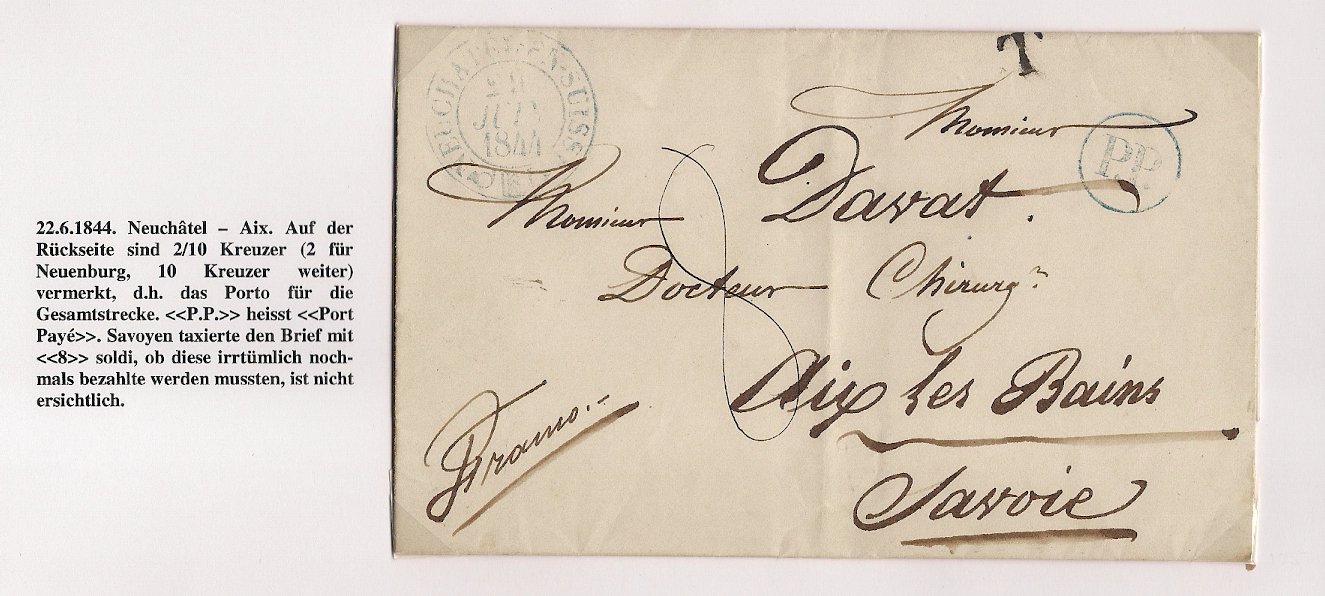 22.6.1844. Neuchâtel – Aix. Auf der
Rückseite sind 2/10 Kreuzer (2 für
Neuenburg, 10 Kreuzer weiter)
vermerkt, d.h. das Porto für die
Gesamtstrecke. <<P.P.>> heisst <<Port
Payé>>. Savoyen taxierte den Brief mit
<<8>> soldi, ob diese irrtümlich noch-
mals bezahlte werden mussten, ist nicht
ersichtlich.
NEUCHATEL-EN-SUISSE
JUIN
1844
T
P.P.
Monsieur
Monsieur Davat.
Docteur Chirurgn
8
Aix les Bains
Savoie
Franco.-